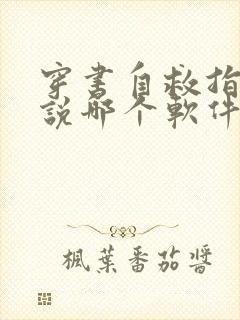 穿書自救指
說那个軟件
楓葉番茄醬